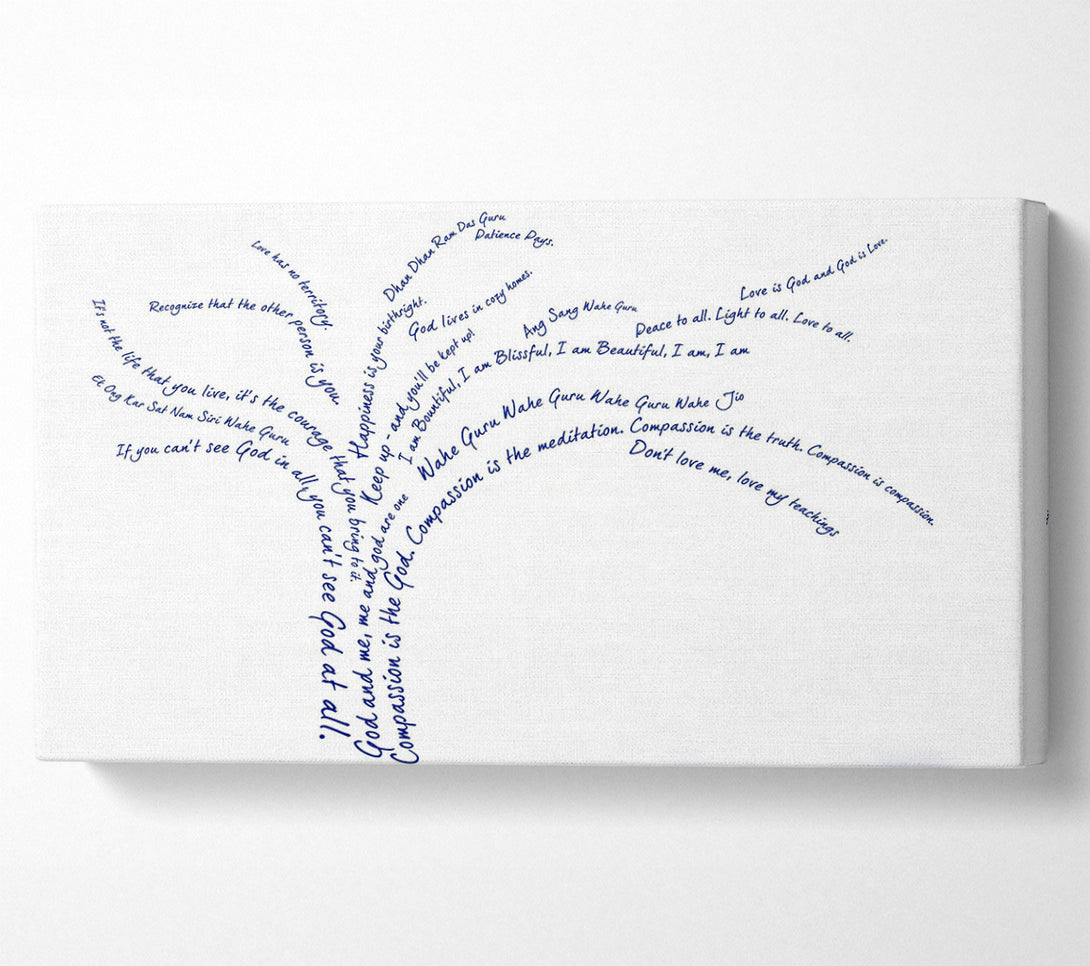 Love has no territory.
Recognize that the other person is you.
It's not the life that you live, it's the courage that you bring to it.
Ek Ong Kar Sat Nam Siri Wahe Guru
If you can't see God in all, you can't see God at all.
Dhan Dhan Ram Das Guru
Patience Pays.
Happiness is your birthright.
God lives in cozy homes.
Keep up - and you'll be kept up!
I am Bountiful, I am Blissful, I am Beautiful, I am, I am
Ang Sang Wahe Guru
Peace to all. Light to all. Love to all.
Love is God and God is Love.
Wahe Guru Wahe Guru Wahe Guru Wahe Jio
God and me, me and god are one
Compassion is the God. Compassion is the meditation. Compassion is the truth. Compassion is compassion.
Don't love me, love my teachings